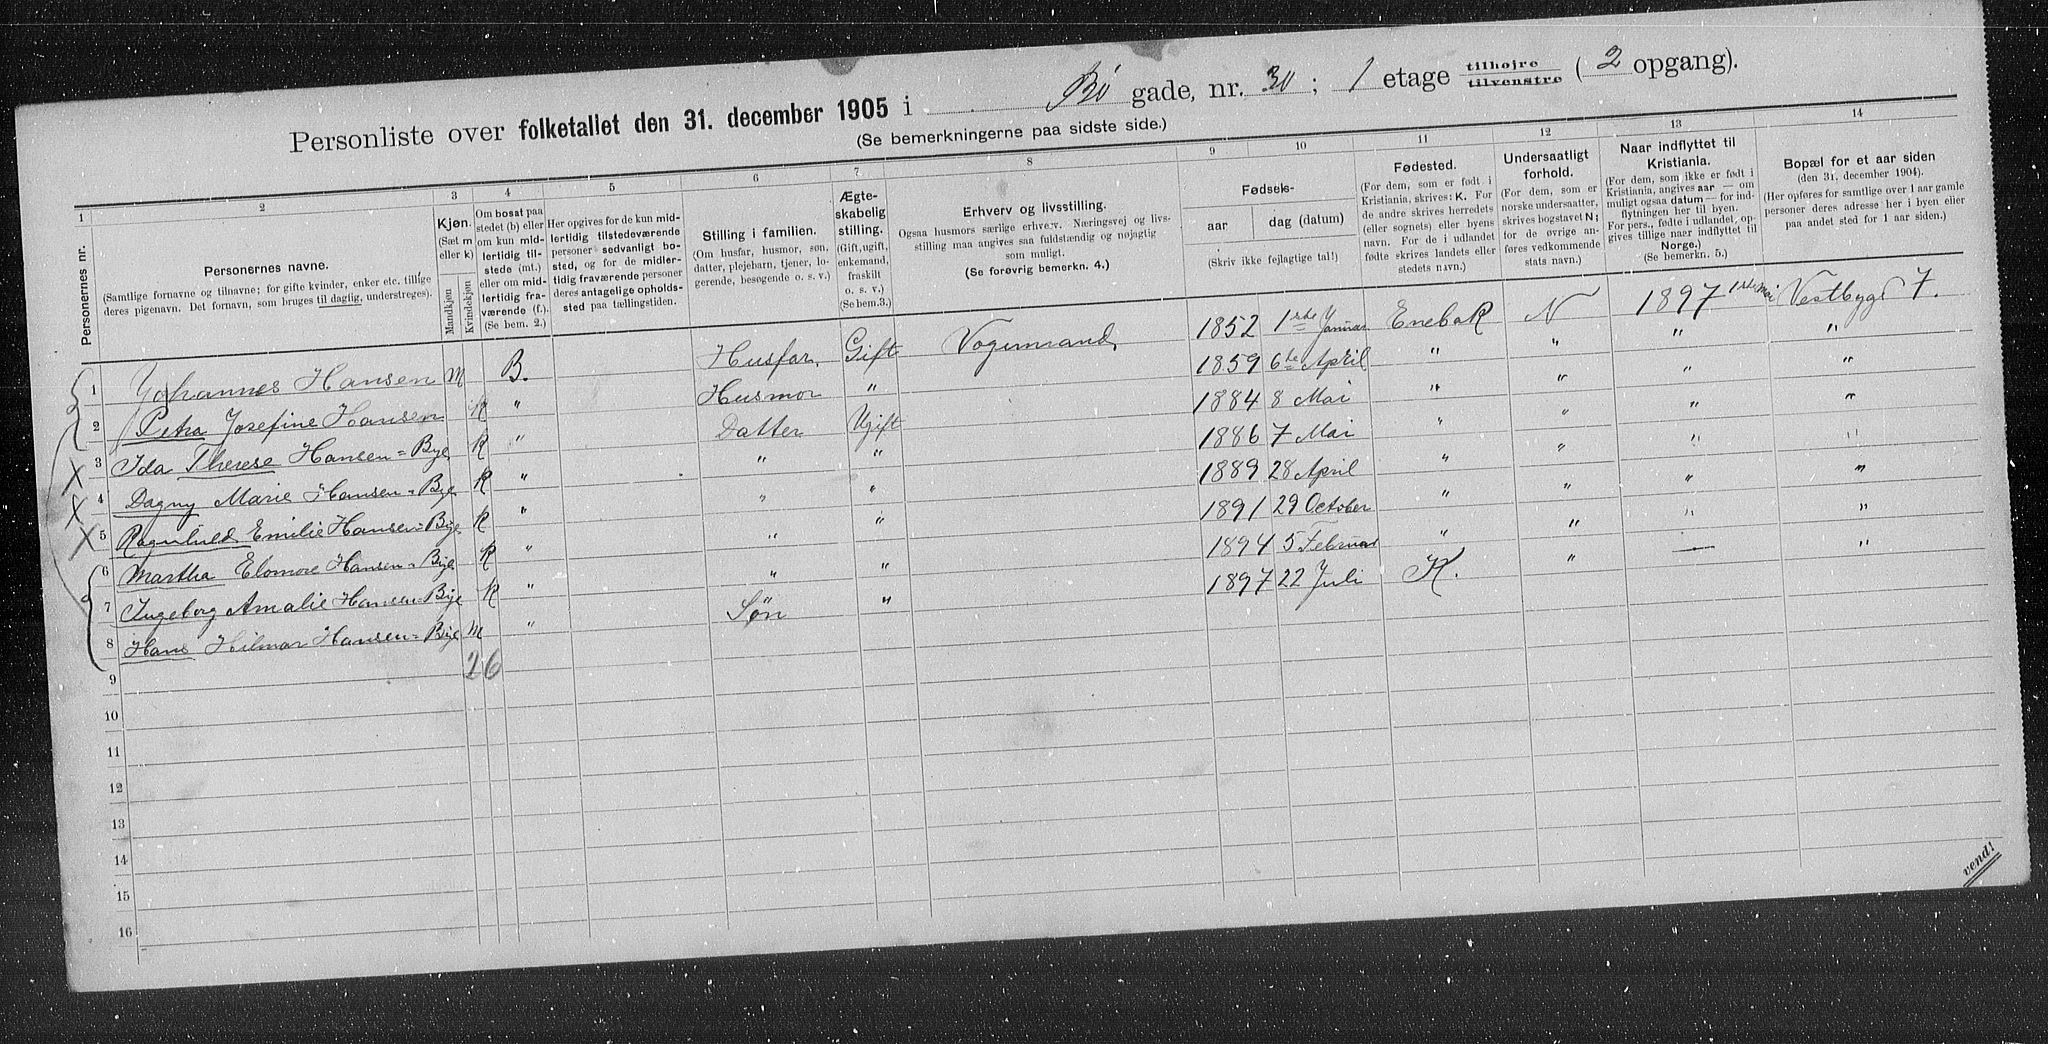 Personliste over folketallet den 31. december 1905 i Bö gade, nr. 30 ; 1 etage tilhøjre tilvenstre ( 2 opgang).
(Se bemerkningerne paa sidste side.)
1 2 3 4 5 6 7 8 9 10 11 12 13 14
Personernes nr.
Personernes navne.
(Samtlige fornavne og tilnavne; for gifte kvinder, enker etc. tillige
deres pigenavn. Det fornavn, som bruges til daglig, understreges).
Kjøn.
(Sæt m
eller k)
Mandkjøn
Kvindekjøn
Om bosat paa
stedet (b) eller
om kun mid-
lertidig til-
stede (mt.)
eller om mid-
lertidig fra-
værende (f.).
(Se bem. 2.)
Her opgives for de kun mid-
lertidig tilstedeværende
personer sedvanligt bo-
sted, og for de midler-
tidig fraværende personer
deres antagelige opholds-
sted paa tællingstiden.
Stilling i familien.
(Om husfar, husmor, søn,
datter, plejebarn, tjener, lo-
gerende, besøgende o. s. v.)
Ægte-
skabelig
stilling.
(Gift, ugift,
enkemand,
fraskilt
o. s. v.)
(Se bem.3.)
Erhverv og livsstilling.
Ogsaa husmors særlige erhverv. Næringsvej og livs-
stilling maa angives saa fuldstændig og nøjagtig
som muligt.
(Se forøvrig bemerkn. 4.)
Fødsels-
aar dag (datum)
(Skriv ikke fejlagtige tal!)
Fødested.
(For dem, som er født i
Kristiania, skrives: K. For
de andre skrives herredets
(eller sognets) eller byens
navn. For de i udlandet
fødte skrives landets eller
stedets navn.)
Undersaatligt
forhold.
(For dem, som er
norske undersaatter,
skrives bogstavet N;
for de øvrige an-
føres vedkommende
stats navn.)
Naar indflyttet til
Kristiania.
(For dem, som ikke er født i
Kristiania, angives aar — om
muligt ogsaa datum — for ind-
flytningen her til byen.
For pers., fødte i udlandet, op-
gives tillige naar indflyttet til
Norge.)
(Se bemerkn. 5.)
Bopæl for et aar siden
(den 31. december 1904).
(Her opføres for samtlige over 1 aar gamle
personer deres adresse her i byen eller
paa andet sted for 1 aar siden.)
1 Johannes Hansen M B. Husfar. Gift Vognmand, 1852 1ste Januar Enebak N 1897 1ste Mai Vestbygd 7.
2 Petra Josefine Hansen K " Husmor " 1859 6te April " " " "
3 Ida Therese Hansen = Bye K " Datter Ugift 1884 8 Mai " " " "
4 Dagny Marie Hansen = Bye K " " " 1886 7 Mai " " " "
5 Ragnhild Emilie Hansen = Bye K " " " 1889 28 April " " " "
6 Martha Elomore Hansen = Bye K " " " 1891 29 October " " " "
7 Ingeborg Amalie Hansen = Bye K " " " 1894 5 Februar " " " "
8 Hans Hilmar Hansen = Bye M " Søn " 1897 22 Juli K. " — "
9 2 6
10
11
12
13
14
15
16
vend!